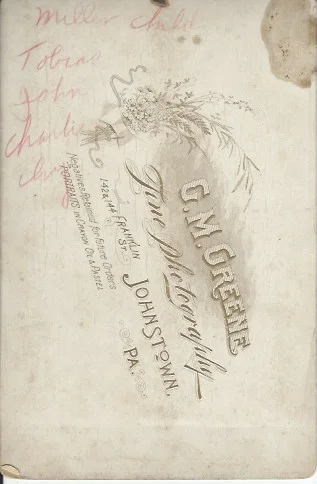 Miller child
Tobias
John
Charlie
G.M. GREENE
Fine Photography
142 & 144 FRANKLIN ST.
JOHNSTOWN,
PA.
Negatives Retained for future Orders
PORTRAITS in CRAYON OIL & PASTEL